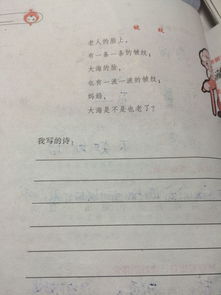 皱纹
老人的脸上，
有一条一条的皱纹，
大海的脸，
也有一波一波的皱纹，
妈妈，
大海是不是也老了？
我写的诗：